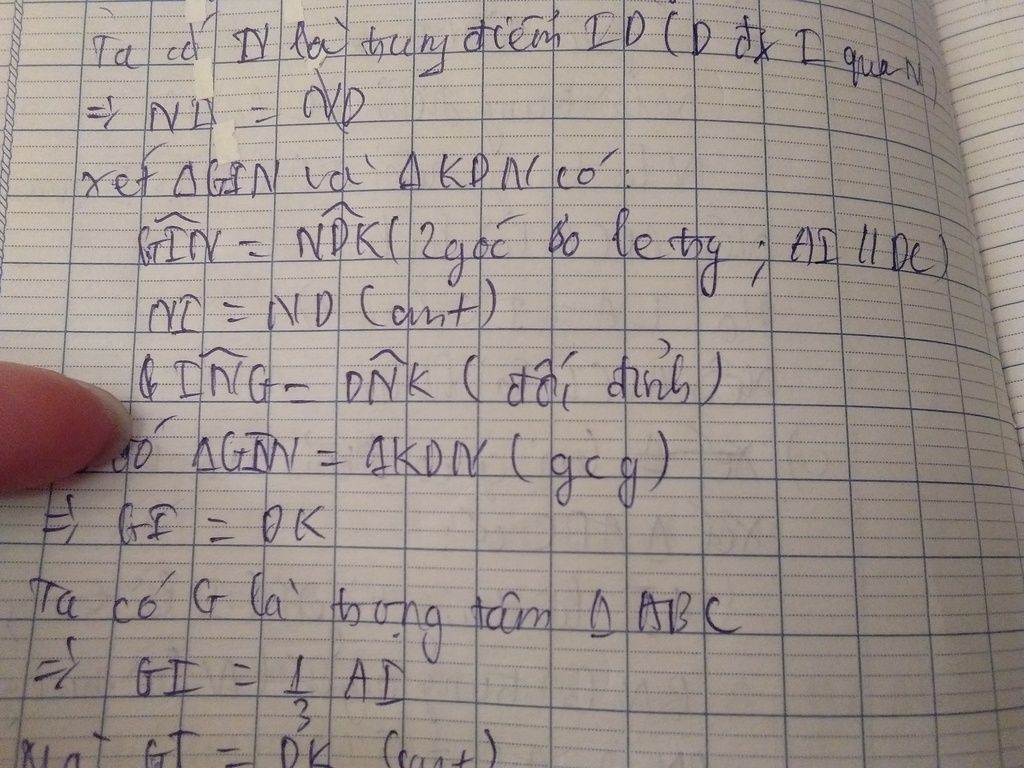 Ta có N là trung điểm ID (D đx I qua N)
=> NI = ND
xét ΔGIN và ΔKDN có:
GIN = NDK (2 góc so le trg; AI // DC)
NI = ND (cmt)
ING = DNK (đối đỉnh)
đó ΔGIN = ΔKDN (gcg)
=> GI = DK
Ta có G là trọng tâm Δ ABC
=> GI = 1/3 AI
Mà GI = DK (cmt)